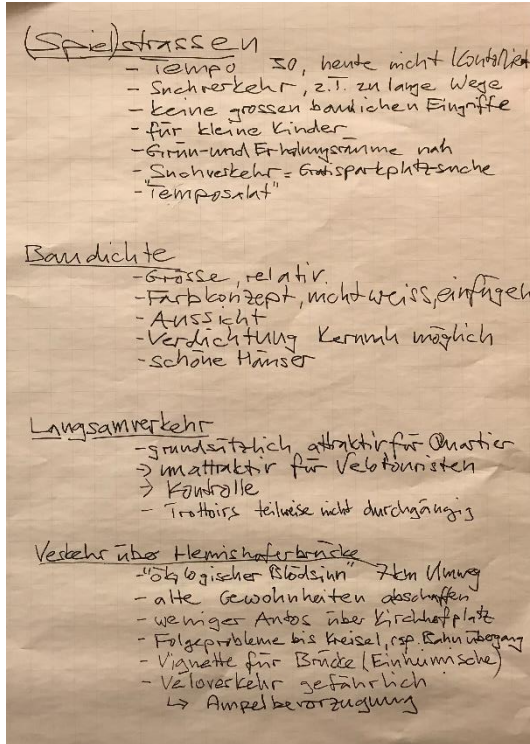 (Spiel)strassen
- Tempo 30, heute nicht kontrolliert
- Suchverkehr, z.T. zu lange Wege
- keine grossen baulichen Eingriffe
- für kleine Kinder
- Grün- und Erholungsräume nah
- Suchverkehr = Gratisparkplatzsuche
- "Temposalat"
Baudichte
- Grösse, relativ
- Farbkonzept, nicht weiss, einfügen
- Aussicht
- Verdichtung Kernnah möglich
- schöne Häuser
Langsamverkehr
- grundsätzlich attraktiv für Quartier
→ unattraktiv für Velotouristen
→ Kontrolle
- Trottoirs teilweise nicht durchgängig
Verkehr über Hemishoferbrücke
- "ökologischer Blödsinn" 7km Umweg
- alte Gewohnheiten abschaffen
- weniger Autos über Kirchhofplatz
- Folgeprobleme bis Kreisel, rsp. Bahnübergang
- Vignette für Brücke (Einheimische)
- Veloverkehr gefährlich
↳ Ampelbevorzugung